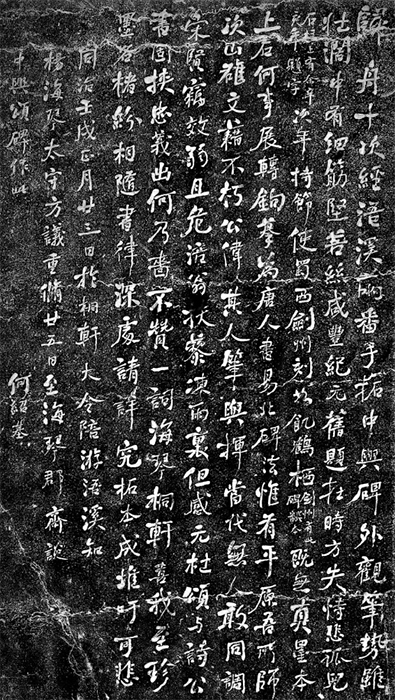 歸舟十次經浯溪兩番手拓中興碑外觀筆勢雖
壯濶中有細筋堅若絲咸豐紀元舊題在時方失恃悲孤兒
次年持節使蜀西劍州刻如飢鶴栖既無真墨本
上石何事展轉鉤摹為唐人書易北碑法惟有平原吾所師
次山雄文藉不朽公偉其人肇與揮當代無人敢同調
宋賢竊效弱且危涪翁扶藜凍雨裏但感元杜頌与詩公
書固挾忠義出何乃嗇不贊一詞海琴桐軒喜我至珍
墨名楮紛相隨書律深處請詳究拓本成堆吁可悲
同治壬戌正月廿三日於桐軒大令陪游浯溪知
楊海琴太守方議重脩廿五日至海琴郡齋談
中興頌碑作此
何紹基